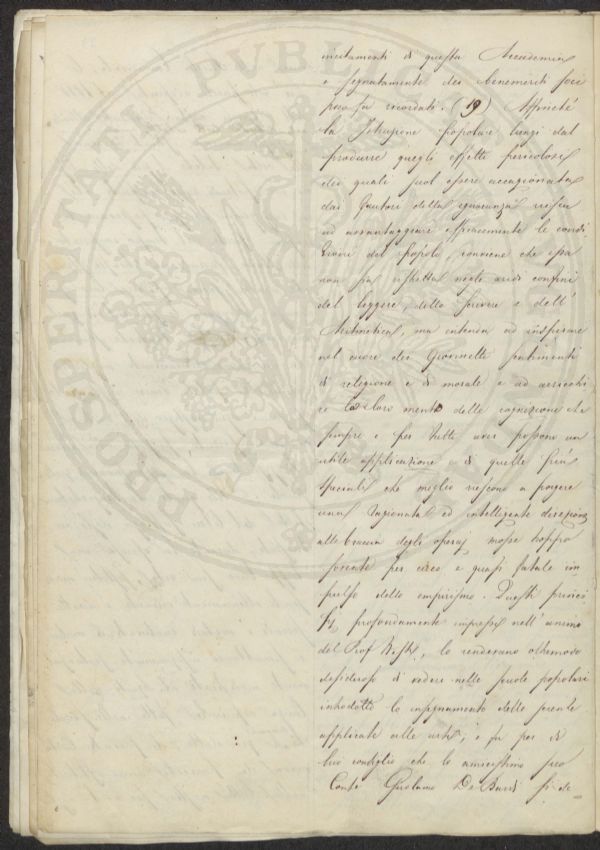 PROSPERITATI PUBLI
incitamenti di questa Accademia
e segnatamente dei benemeriti soci
poco fa ricordati. (19) Affinché
la Istruzione popolare lungi dal
produrre quegli effetti pericolosi
dei quali suol essere accagionata
dai fautori della ignoranza riesca
ad avvantaggiare efficacemente le condi
zioni del Popolo, conviene che essa
non sia ristretta negli aridi confini
del leggere, dello scrivere e dell'
Aritmetica, ma intenda ad inspirare
nel cuore dei Giovinetti sentimenti
di religione e di morale e ad arricchi
re la loro mente delle cognizioni che
sempre e per tutti aver possono un
utile applicazione e di quelle più
speciali che meglio riescono a porgere
una ragionata ed intelligente direzione
alle braccia degli operaj mosse troppo
sovente per cieco e quasi fatale im
pulso dello empirismo. Questi princi
pj, profondamente impressi nell'animo
del Prof., lo rendevano oltremodo
desideroso di vedere nelle scuole popolari
introdotto lo insegnamento delle scienze
applicate alle arti; e fu per di
lui consiglio che lo amicissimo suo
Conte Girolamo De Bardi